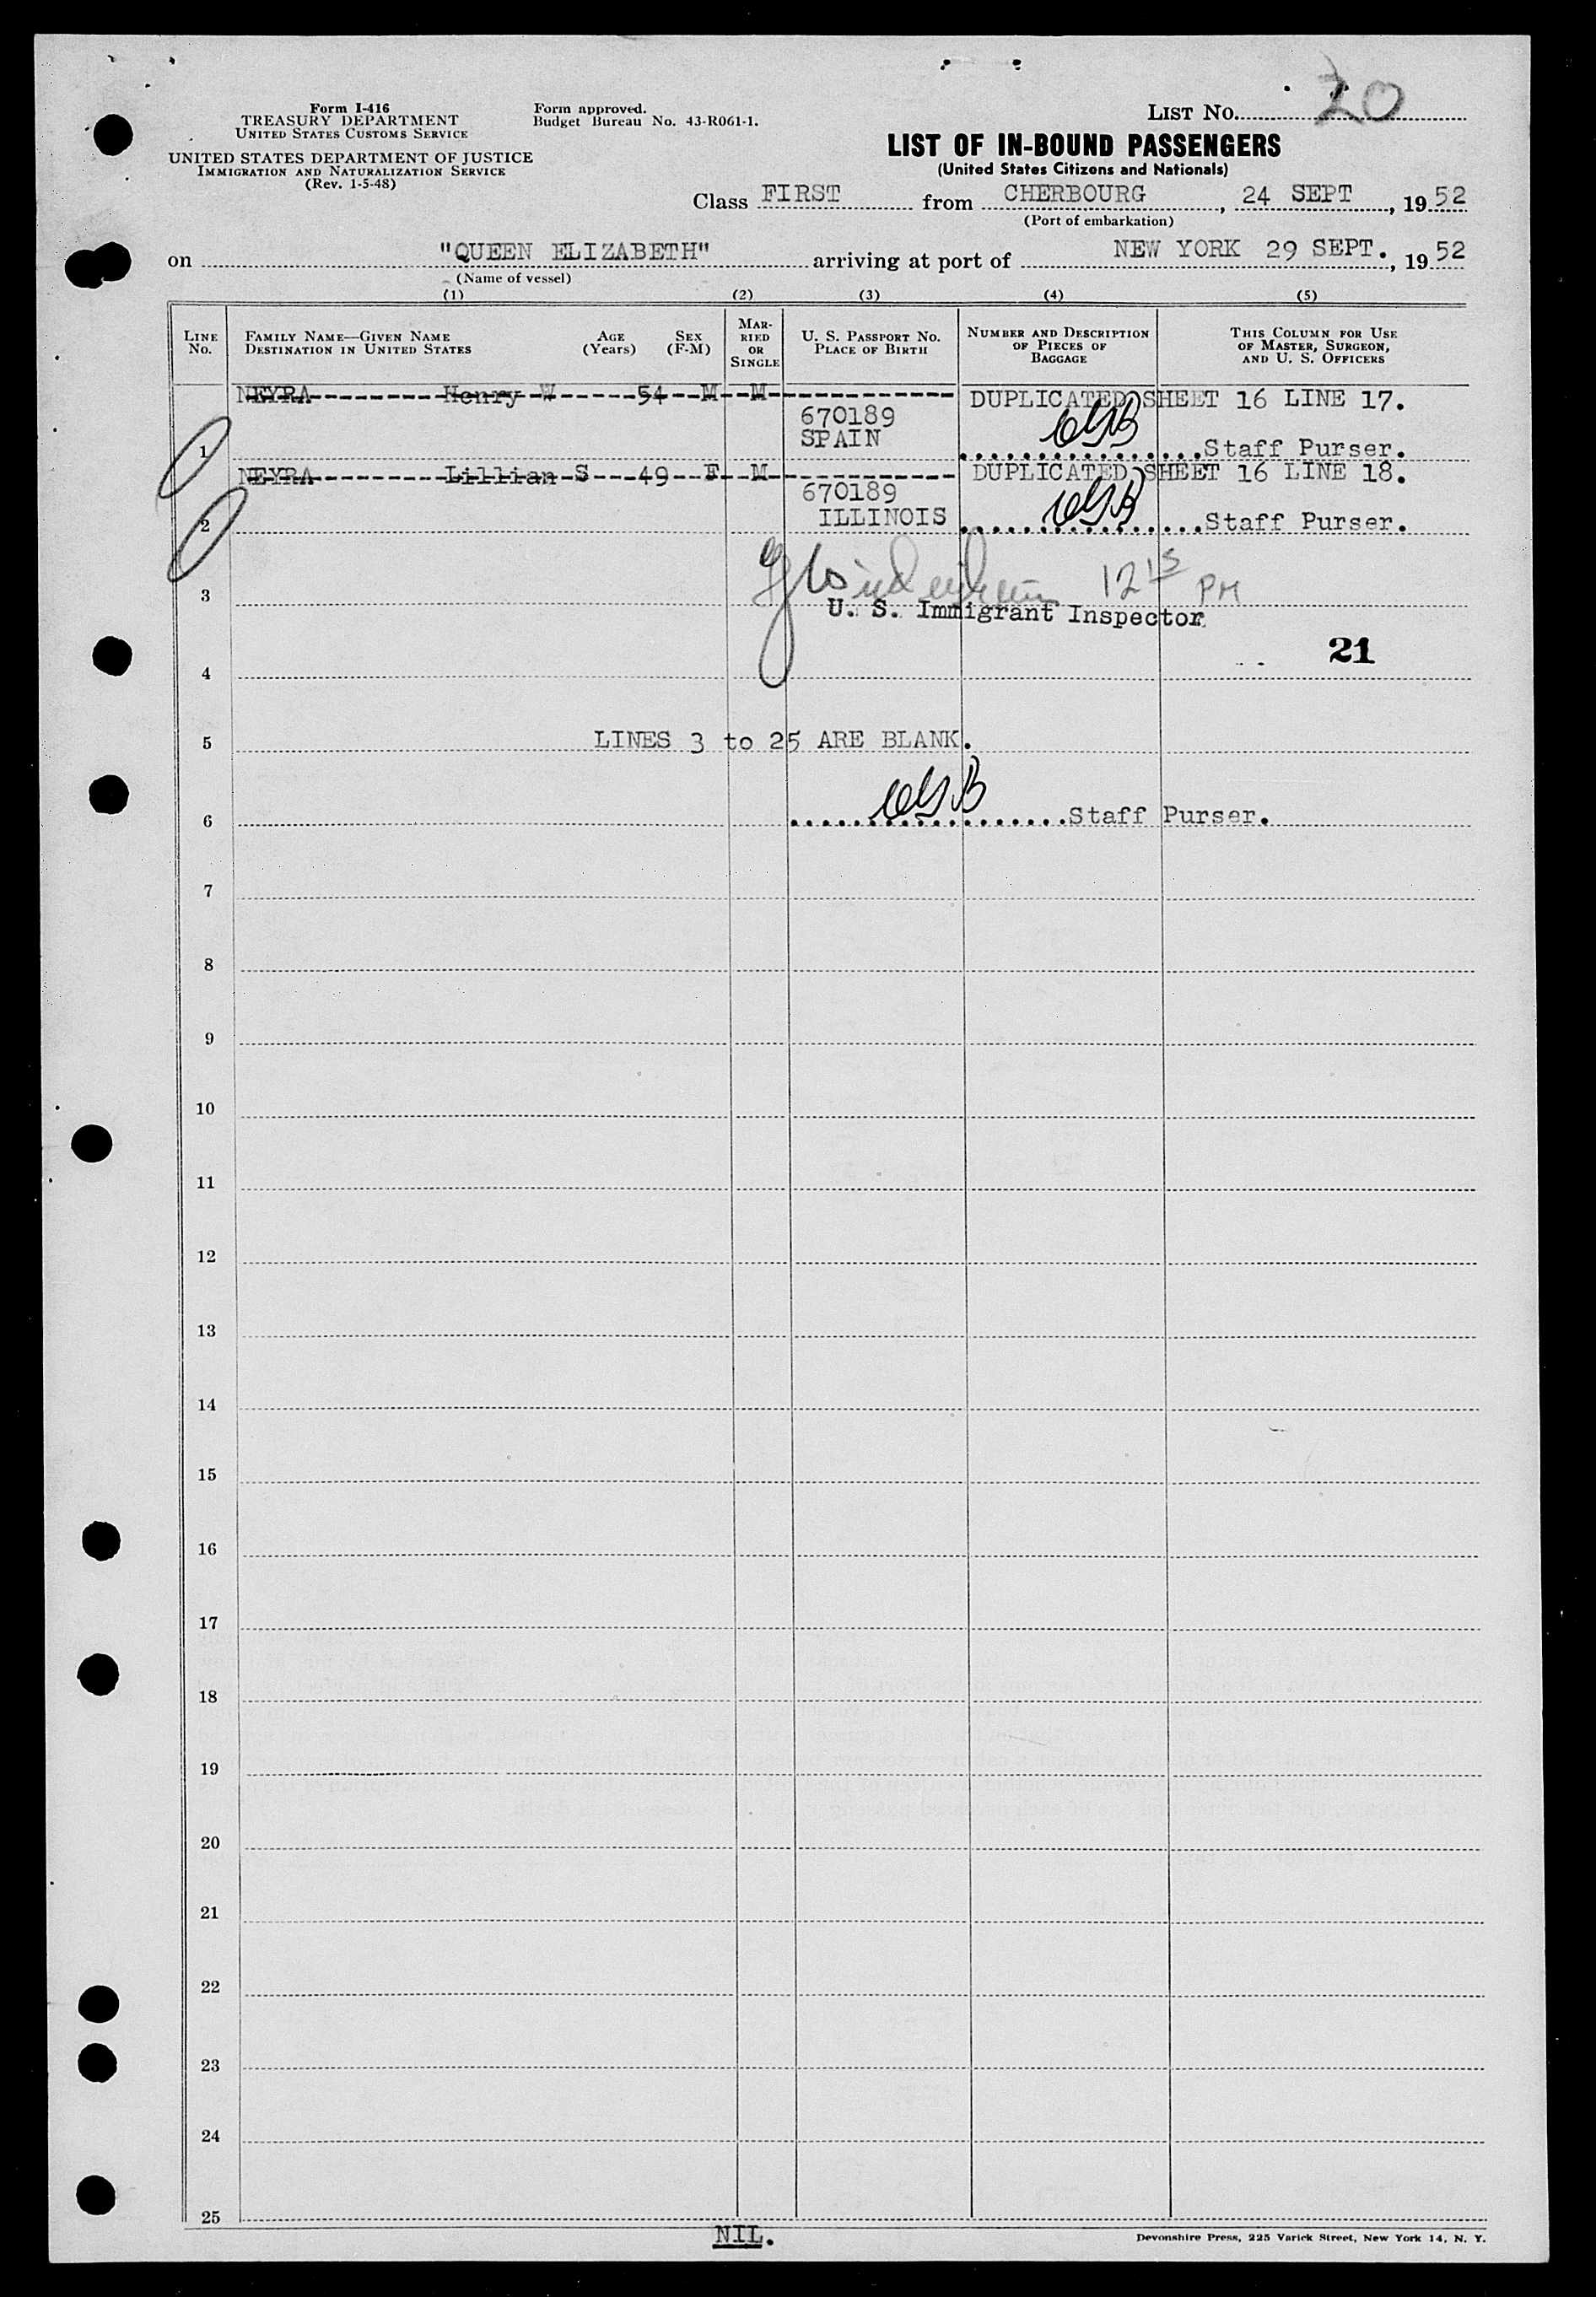 Form I-416
TREASURY DEPARTMENT
UNITED STATES CUSTOMS SERVICE
UNITED STATES DEPARTMENT OF JUSTICE
IMMIGRATION AND NATURALIZATION SERVICE
(Rev. 1-5-48)
Form approved.
Budget Bureau No. 43-R061-1.
LIST No. 20
LIST OF IN-BOUND PASSENGERS
(United States Citizens and Nationals)
Class FIRST from CHERBOURG, 24 SEPT, 1952
(Port of embarkation)
on "QUEEN ELIZABETH" arriving at port of NEW YORK 29 SEPT., 1952
(Name of vessel)
(1) (2) (3) (4) (5)
LINE No.
FAMILY NAME—GIVEN NAME DESTINATION IN UNITED STATES
AGE (Years)
SEX (F-M)
MARRIED OR SINGLE
U. S. PASSPORT NO. PLACE OF BIRTH
NUMBER AND DESCRIPTION OF PIECES OF BAGGAGE
THIS COLUMN FOR USE OF MASTER, SURGEON, AND U. S. OFFICERS
NEYRA Henry W 54 M M DUPLICATED SHEET 16 LINE 17.
670189
SPAIN
1 Staff Purser.
NEYRA Lillian S 49 F M DUPLICATED SHEET 16 LINE 18.
670189
2 ILLINOIS Staff Purser.
12 15 PM
3 U. S. Immigrant Inspector
21
4
5 LINES 3 to 25 ARE BLANK.
6 Staff Purser.
7
8
9
10
11
12
13
14
15
16
17
18
19
20
21
22
23
24
25
NIL.
Devonshire Press, 225 Varick Street, New York 14, N. Y.